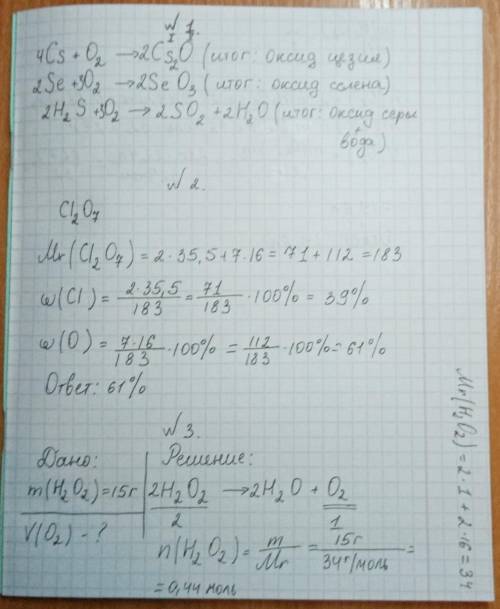 № 1.
4Cs + O₂ → 2Cs₂O (итог: оксид цезия)
2Se + 3O₂ → 2SeO₃ (итог: оксид селена)
2H₂S + 3O₂ → 2SO₂ + 2H₂O (итог: оксид серы + вода)
№ 2.
Cl₂O₇
Mr(Cl₂O₇) = 2·35,5 + 7·16 = 71 + 112 = 183
ω(Cl) = 2·35,5/183 = 71/183 · 100% = 39%
ω(O) = 7·16/183 · 100% = 112/183 · 100% = 61%
Ответ: 61%
№ 3.
Дано: Решение:
m(H₂O₂) = 15г 2H₂O₂ → 2H₂O + O₂
2 1
V(O₂) - ?
n(H₂O₂) = m/Mr = 15г/34г/моль =
= 0,44 моль
Mr(H₂O₂) = 2·1 + 2·16 = 34